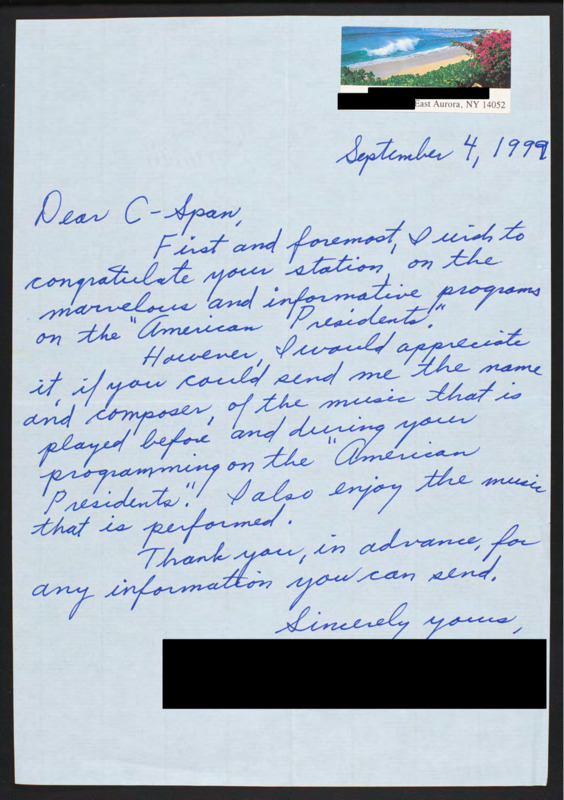 East Aurora, NY 14052
September 4, 1999
Dear C-Span,
First and foremost, I wish to
congratulate your station, on the
marvelous and informative programs
on the "American Presidents".
However, I would appreciate
it, if you could send me the name
and composer, of the music that is
played before and during your
programming on the "American
Presidents". I also enjoy the music
that is performed.
Thank you, in advance, for
any information you can send.
Sincerely yours,